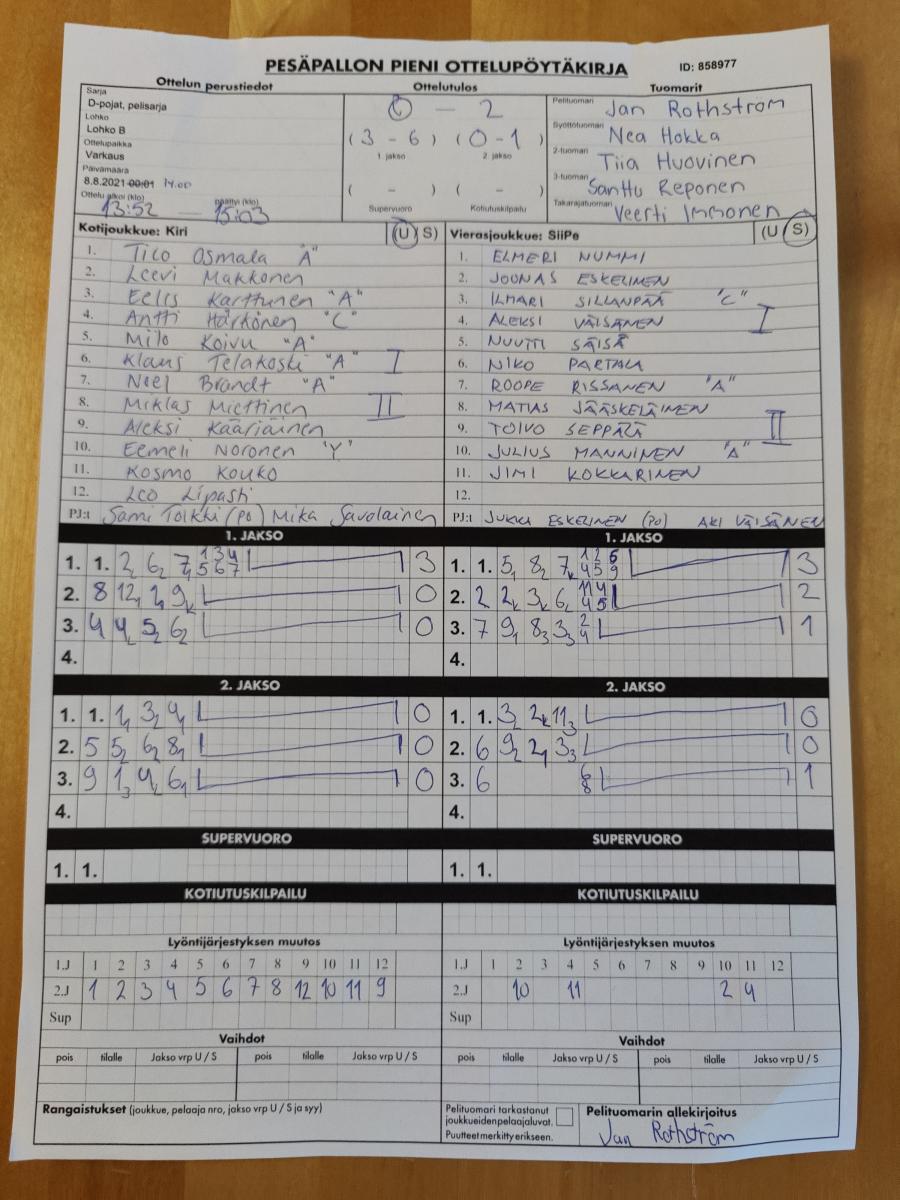 PESÄPALLON PIENI OTTELUPÖYTÄKIRJA
ID: 858977
Ottelun perustiedot
Ottelutulos
Tuomarit
Sarja
D-pojat, pelisarja
Lohko
Lohko B
Ottelupaikka
Varkaus
Päivämäärä
8.8.2021 00:01 14.00
Ottelu alkoi (klo) päättyi (klo)
13:52 — 15:03
0 – 2
(3 – 6) (0 – 1)
1 jakso 2 jakso
( - ) ( - )
Supervuoro Kotiutuskilpailu
Pelituomari Jan Rothström
Syöttötuomari Nea Hokka
2-tuomari Tiia Huovinen
3-tuomari Santtu Reponen
Takarajatuomari Veerti Immonen
Kotijoukkue: Kiri (U / S)
1. Tico Osmala "A"
2. Leevi Makkonen
3. Eelis Karttunen "A"
4. Antti Härkönen "C"
5. Milo Koivu "A"
6. Klaus Telakoski "A" I
7. Neel Brandt "A"
8. Miklas Miettinen II
9. Aleksi Kääriäinen
10. Eemeli Noronen "Y"
11. Kosmo Kouko
12. Leo Lipasti
PJ:t Sami Tolkki (po) Mika Savolainen
Vierasjoukkue: SiiPe (U / S)
1. ELMERI NUMMI
2. JOONAS ESKELINEN
3. ILMARI SILLANPÄÄ "C"
4. ALEKSI VÄISÄNEN I
5. NUUTTI SÄISÄ
6. NIKO PARTALA
7. ROOPE RISSANEN "A"
8. MATIAS JÄÄSKELÄINEN
9. TOIVO SEPPÄLÄ II
10. JULIUS MANNINEN "A"
11. JIMI KOKKARINEN
12.
PJ:t JUKKA ESKELINEN (po) AKI VÄISÄNEN
1. JAKSO
1. 1. 2, 6₂ 7₄ 1 3 4 5 6 7 3
2. 8 12, 2, 9ₖ 0
3. 4 4₂ 5₂ 6₂ 0
4.
1. JAKSO
1. 1. 5₁ 8₂ 7ₖ 1 2 6 4 5 9 3
2. 2 2ₖ 3ₖ 6₂ 11 4 4 5 2
3. 7 9₁ 8₃ 3₃ 2 4 1
4.
2. JAKSO
1. 1. 1₁ 3₂ 4₁ 0
2. 5 5₂ 6₂ 8₁ 0
3. 9 1₃ 4₂ 6₁ 0
4.
2. JAKSO
1. 1. 3₂ 2ₖ 11₃ 0
2. 6 9₂ 2₁ 3₃ 0
3. 6 6 8 1
4.
SUPERVUORO
1. 1.
SUPERVUORO
1. 1.
KOTIUTUSKILPAILU
KOTIUTUSKILPAILU
Lyöntijärjestyksen muutos
1.J 1 2 3 4 5 6 7 8 9 10 11 12
2.J 1 2 3 4 5 6 7 8 12 10 11 9
Sup
Lyöntijärjestyksen muutos
1.J 1 2 3 4 5 6 7 8 9 10 11 12
2.J 10 11 2 4
Sup
Vaihdot
pois tilalle Jakso vrp U / S pois tilalle Jakso vrp U / S
Vaihdot
pois tilalle Jakso vrp U / S pois tilalle Jakso vrp U / S
Rangaistukset (joukkue, pelaaja nro, jakso vrp U / S ja syy)
Pelituomari tarkastanut
joukkueiden pelaajaluvat.
Puutteet merkitty erikseen.
Pelituomarin allekirjoitus
Jan Rothström